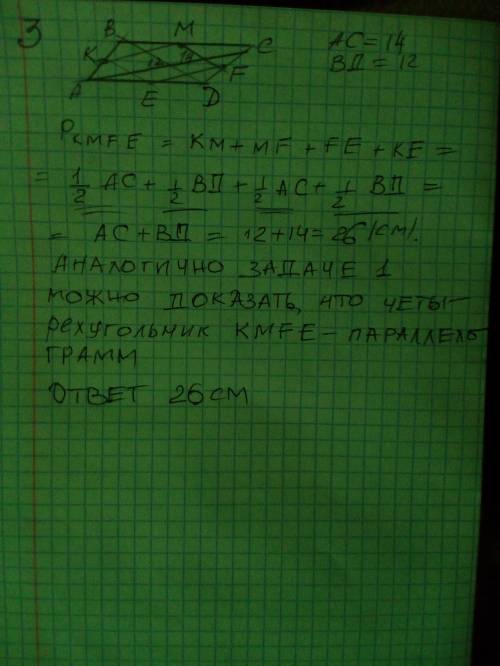 3
B M C
K F
A E D
AC = 14
ВД = 12
PKMFE = KM + MF + FE + KE =
= 1/2 AC + 1/2 ВД + 1/2 AC + 1/2 ВД =
= AC + ВД = 12 + 14 = 26 (см).
АНАЛОГИЧНО ЗАДАЧЕ 1
МОЖНО ДОКАЗАТЬ, ЧТО ЧЕТЫ-
РЕХУГОЛЬНИК KMFE – ПАРАЛЛЕЛО
ГРАММ
ОТВЕТ 26 СМ